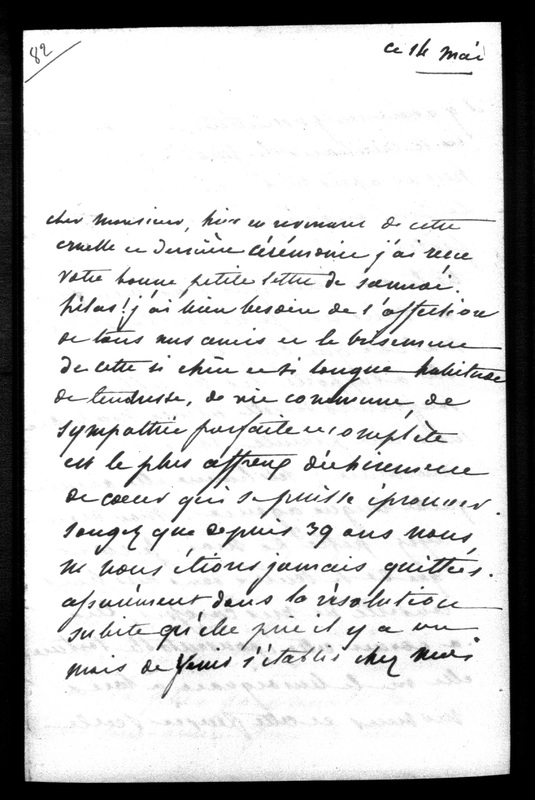 82
ce 14 mai
cher monsieur, hier en revenant de cette
cruelle et dernière cérémonie j'ai reçu
votre bonne petite lettre de samedi.
hélas! j'ai bien besoin de l'affection
de tous mes amis et le brisement
de cette si chère et si longue habitude
de tendresse, de vie commune, de
sympathie parfaite et complète
est le plus affreux déchirement
de coeur qui se puisse éprouver.
songez que depuis 39 ans nous
ne nous étions jamais quittées.
assurément dans la résolution
subite qu'elle prit il y a un
mois de venir s'établir chez moi